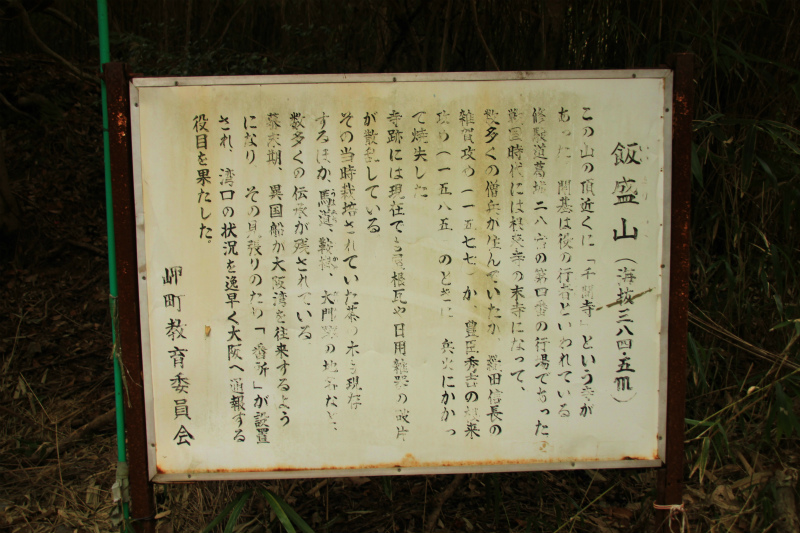 飯盛山（海抜三八四・五m）
この山の頂近くに「千間寺」という寺が
あった 開基は役の行者といわれている
修験道葛城二八宿の第四番の行場であった
戦国時代には根来寺の末寺になって、
数多くの僧兵が住んでいたが 織田信長の
雑賀攻め（一五七七 か 豊臣秀吉の根来
攻め（一五八五 のときに 兵火にかかっ
て焼失した
寺跡には現在でも屋根瓦や日用雑器の破片
が散乱している
その当時栽培されていた茶の木も現存
するほか、馬道、鞍掛、大門 の地名など、
数多くの伝承が残されている
幕末期、異国船が大阪湾を往来するよう
になり その見張りのため「番所」が設置
され、湾口の状況を逸早く大阪へ通報する
役目を果たした。
岬町教育委員会